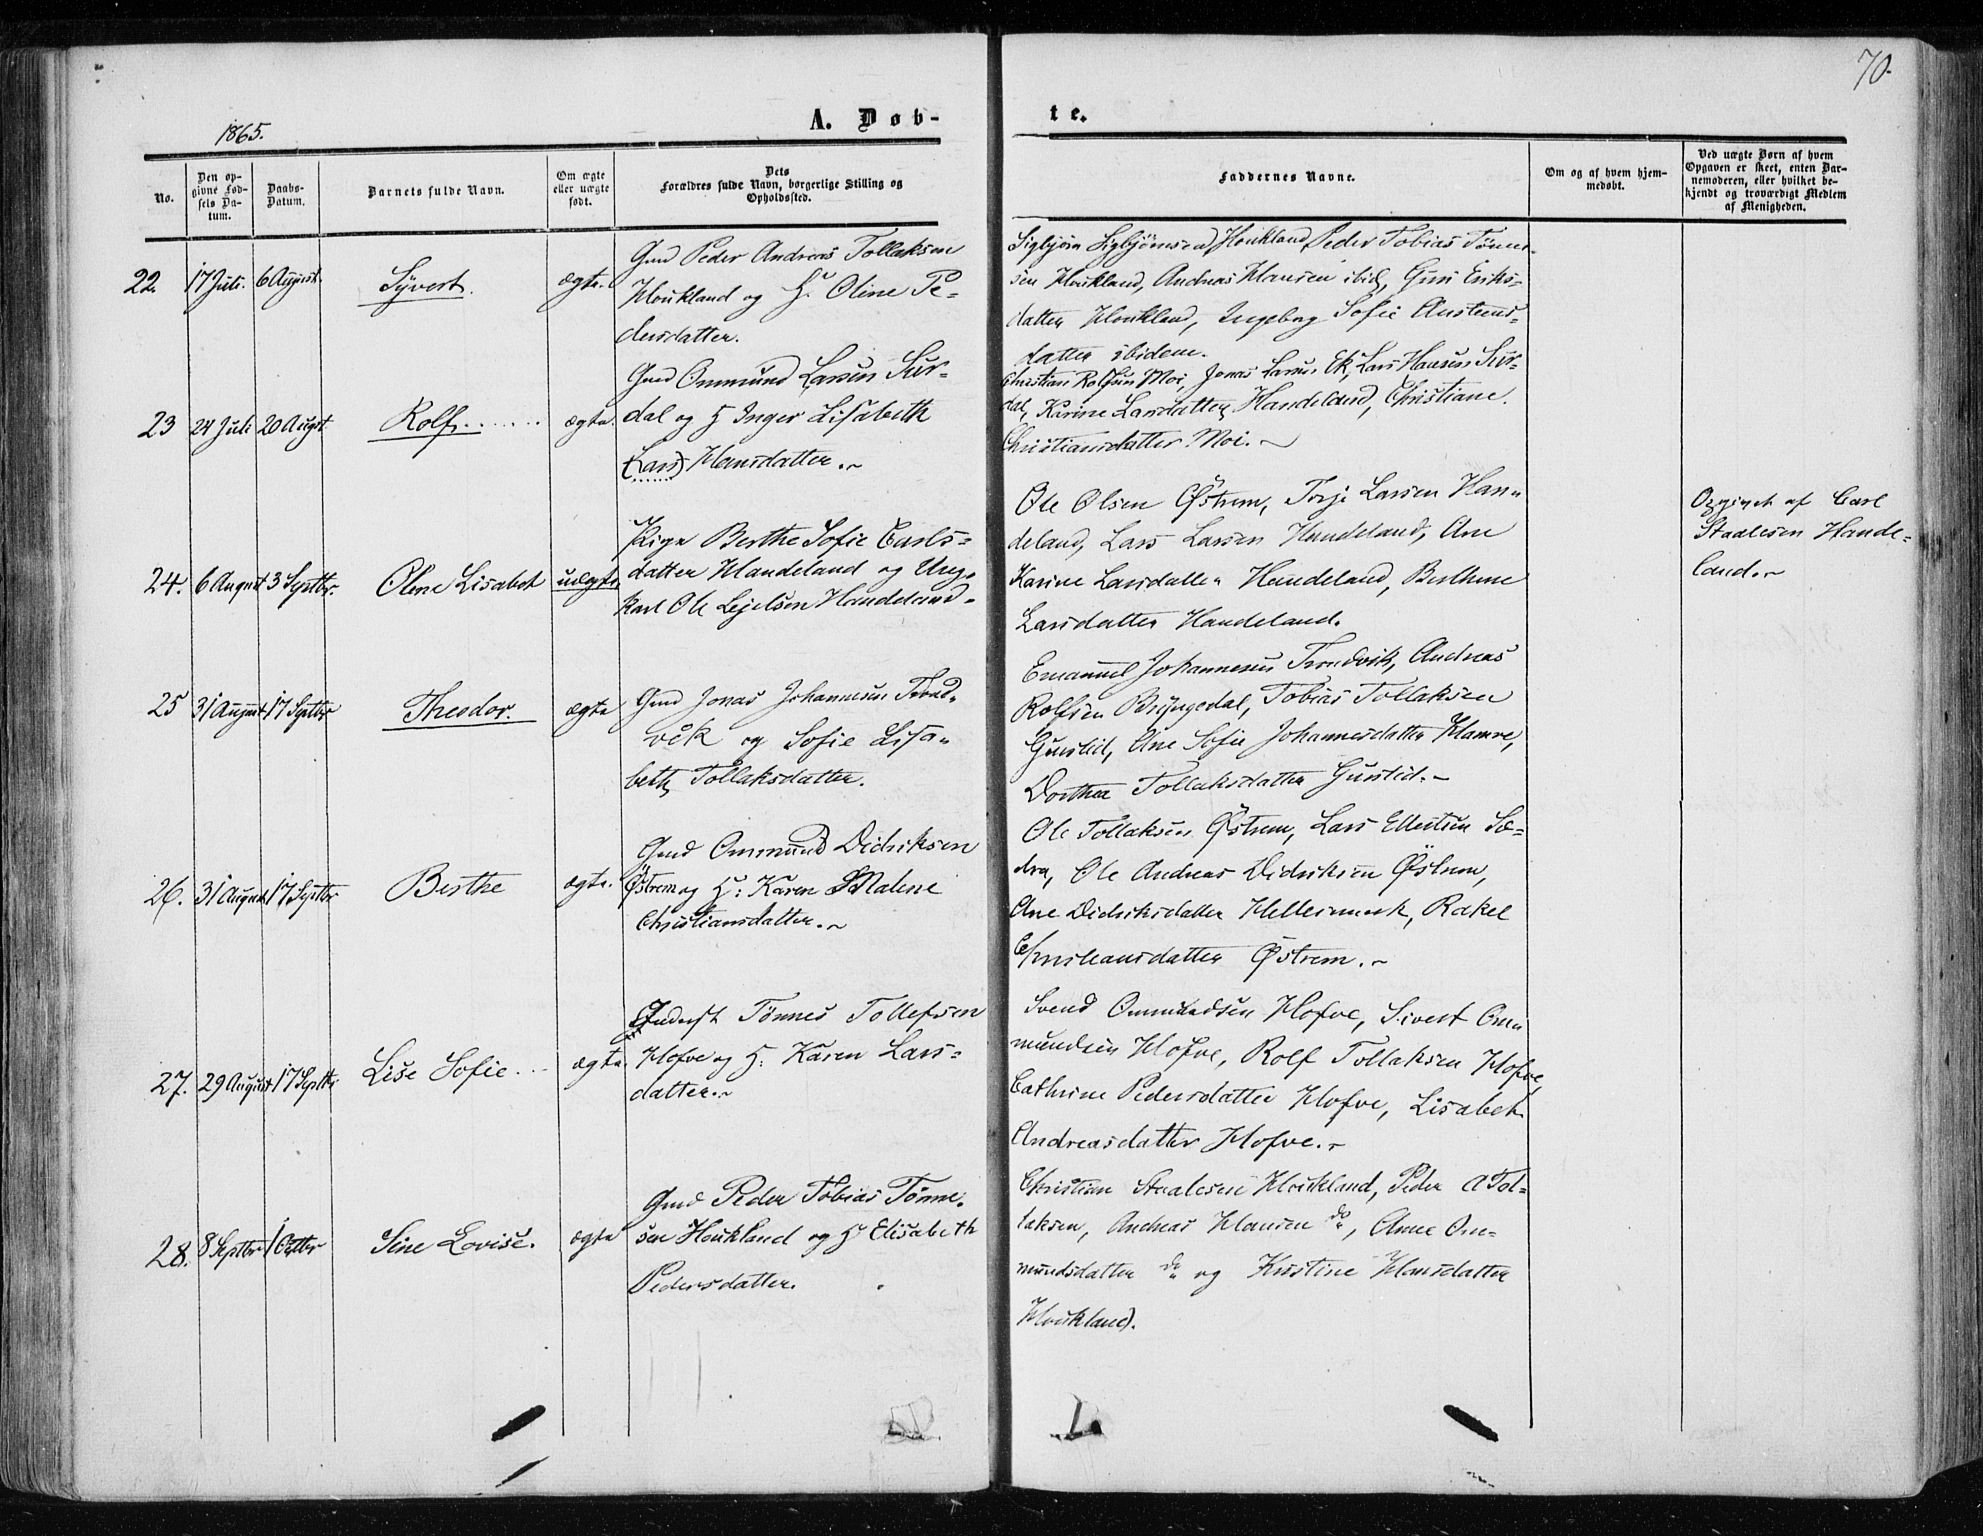 70.
1865.
A. Døb-
te.
No.
Den op-
givne Fød-
sels Da-
tum.
Daabs-
Datum.
Barnets fulde Navn.
Om ægte
eller uægte
født.
Dets
Forældres fulde Navn, borgerlige Stilling og
Opholdssted.
Faddernes Navne.
Om og af hvem hjem-
medøbt.
Ved uægte Børn af hvem
Opgaven er skeet, enten Bar-
nemoderen, eller hvilket be-
kjendt og troværdigt Medlem
af Menigheden.
22. 17 Juli. 6 August. Syvert. ægte.
Gmd Peder Andreas Tollaksen
Houkland og H. Oline Pe-
dersdatter.
Sigbjørn Sigbjørnsen Houkland, Peder Tobias Tønne-
sen Houkland, Andreas Hansen ibid, Guri Eriks-
datter Houkland, Ingeborg Sofie Austens-
datter ibidem.
23 24 Juli 20 Augst Rolf. ægte.
Gmd Ommund Larsen Sur-
dal og H Inger Lisabeth
(Lars) Hansdatter.
Christian Rolfsen Moi, Jonas Larsen Ek, Lars Hansen Sur-
dal, Karine Larsdatter Handeland, Christiane
Christiansdatter Moi.
24. 6 August 3 Septbr. Olene Lisabet uægte
Pige Berthe Sofie Carls-
datter Handeland og Ung-
karl Ole Lejelsen Handeland.
Ole Olsen Østrem, Terje Larsen Han-
deland, Lars Larsen Handeland, Ane
Karine Larsdatter Handeland, Berthine
Larsdatter Handeland.
Opgivet af Carl
Staalesen Hande-
land.
25 31 August 17 Septbr Theodor. ægte
Gmd Jonas Johannesen Trond-
vik og Sofie Lisa-
beth Tollaksdatter.
Emanuel Johannesen Trondvik, Andreas
Rolfsen Bryngedal, Tobias Tollaksen
Gursted, Ane Sofie Johannesdatter Hamre,
Dorthea Tollaksdatter Gursted.
26. 31 August 17 Septbr Berthe ægte.
Gmd Ommund Didriksen
Østrem og H: Karen Malene
Christiansdatter.
Ole Tollaksen Østrem, Lars Ellertsen Sæ-
dra, Ole Andreas Didriksen Østrem,
Ane Didriksdatter Hellesmark, Rakel
Christiansdatter Østrem.
27. 29 August 17 Septbr Lise Sofie ægte.
Inderst Tønnes Tollefsen
Hofve og H: Karen Lars-
datter.
Svend Ommundsen Hofve, Sivert Om-
mundsen Hofve, Rolf Tollaksen Hofve,
Cathrine Pedersdatter Hofve, Lisabet
Andreasdatter Hofve.
28. 8 Septbr 1 Octbr Sine Lovise. ægte
Gmd Peder Tobias Tønne-
sen Houkland og H Elisabeth
Pedersdatter.
Christian Staalesen Houkland, Peder A Tol-
laksen, Andreas Hansen do, Anne Om-
mundsdatter do og Kristine Hansdatter
Houkland.